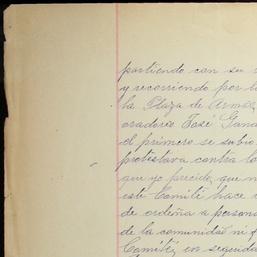 partiendo con su
y recorriendo por l
la Plaza de Armas
oradores José Gan
el primero se subio
protestava contra l
que yo precido, que n
este Comité hace
de ordeña a persona
de la comunidad ni f
Comité, en seguida